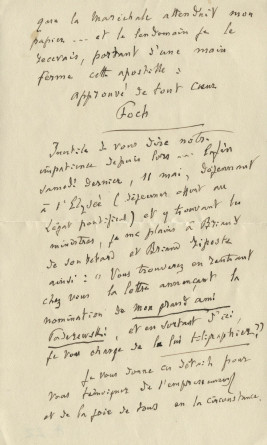 que la Maréchale attendait mon
papier ... et le lendemain je le
recevais, portant d'une main
ferme cette apostille :
approuvé de tout cœur
Foch
Inutile de vous dire notre
impatience depuis lors ... Enfin
samedi dernier, 11 mai, déjeunant
à l'Elysée (déjeuner offert au
légat pontifical) et y trouvant les
ministres, je me plains à Briand
de son retard et Briand riposte
ainsi : "Vous trouverez en rentrant
chez vous la lettre annonçant la
nomination de mon grand ami
Paderewski, et en sortant d'ici,
je vous charge de la lui télégraphier."
Je vous donne ce détail pour
vous témoigner de l'empressement
et de la joie de tous en la circonstance.